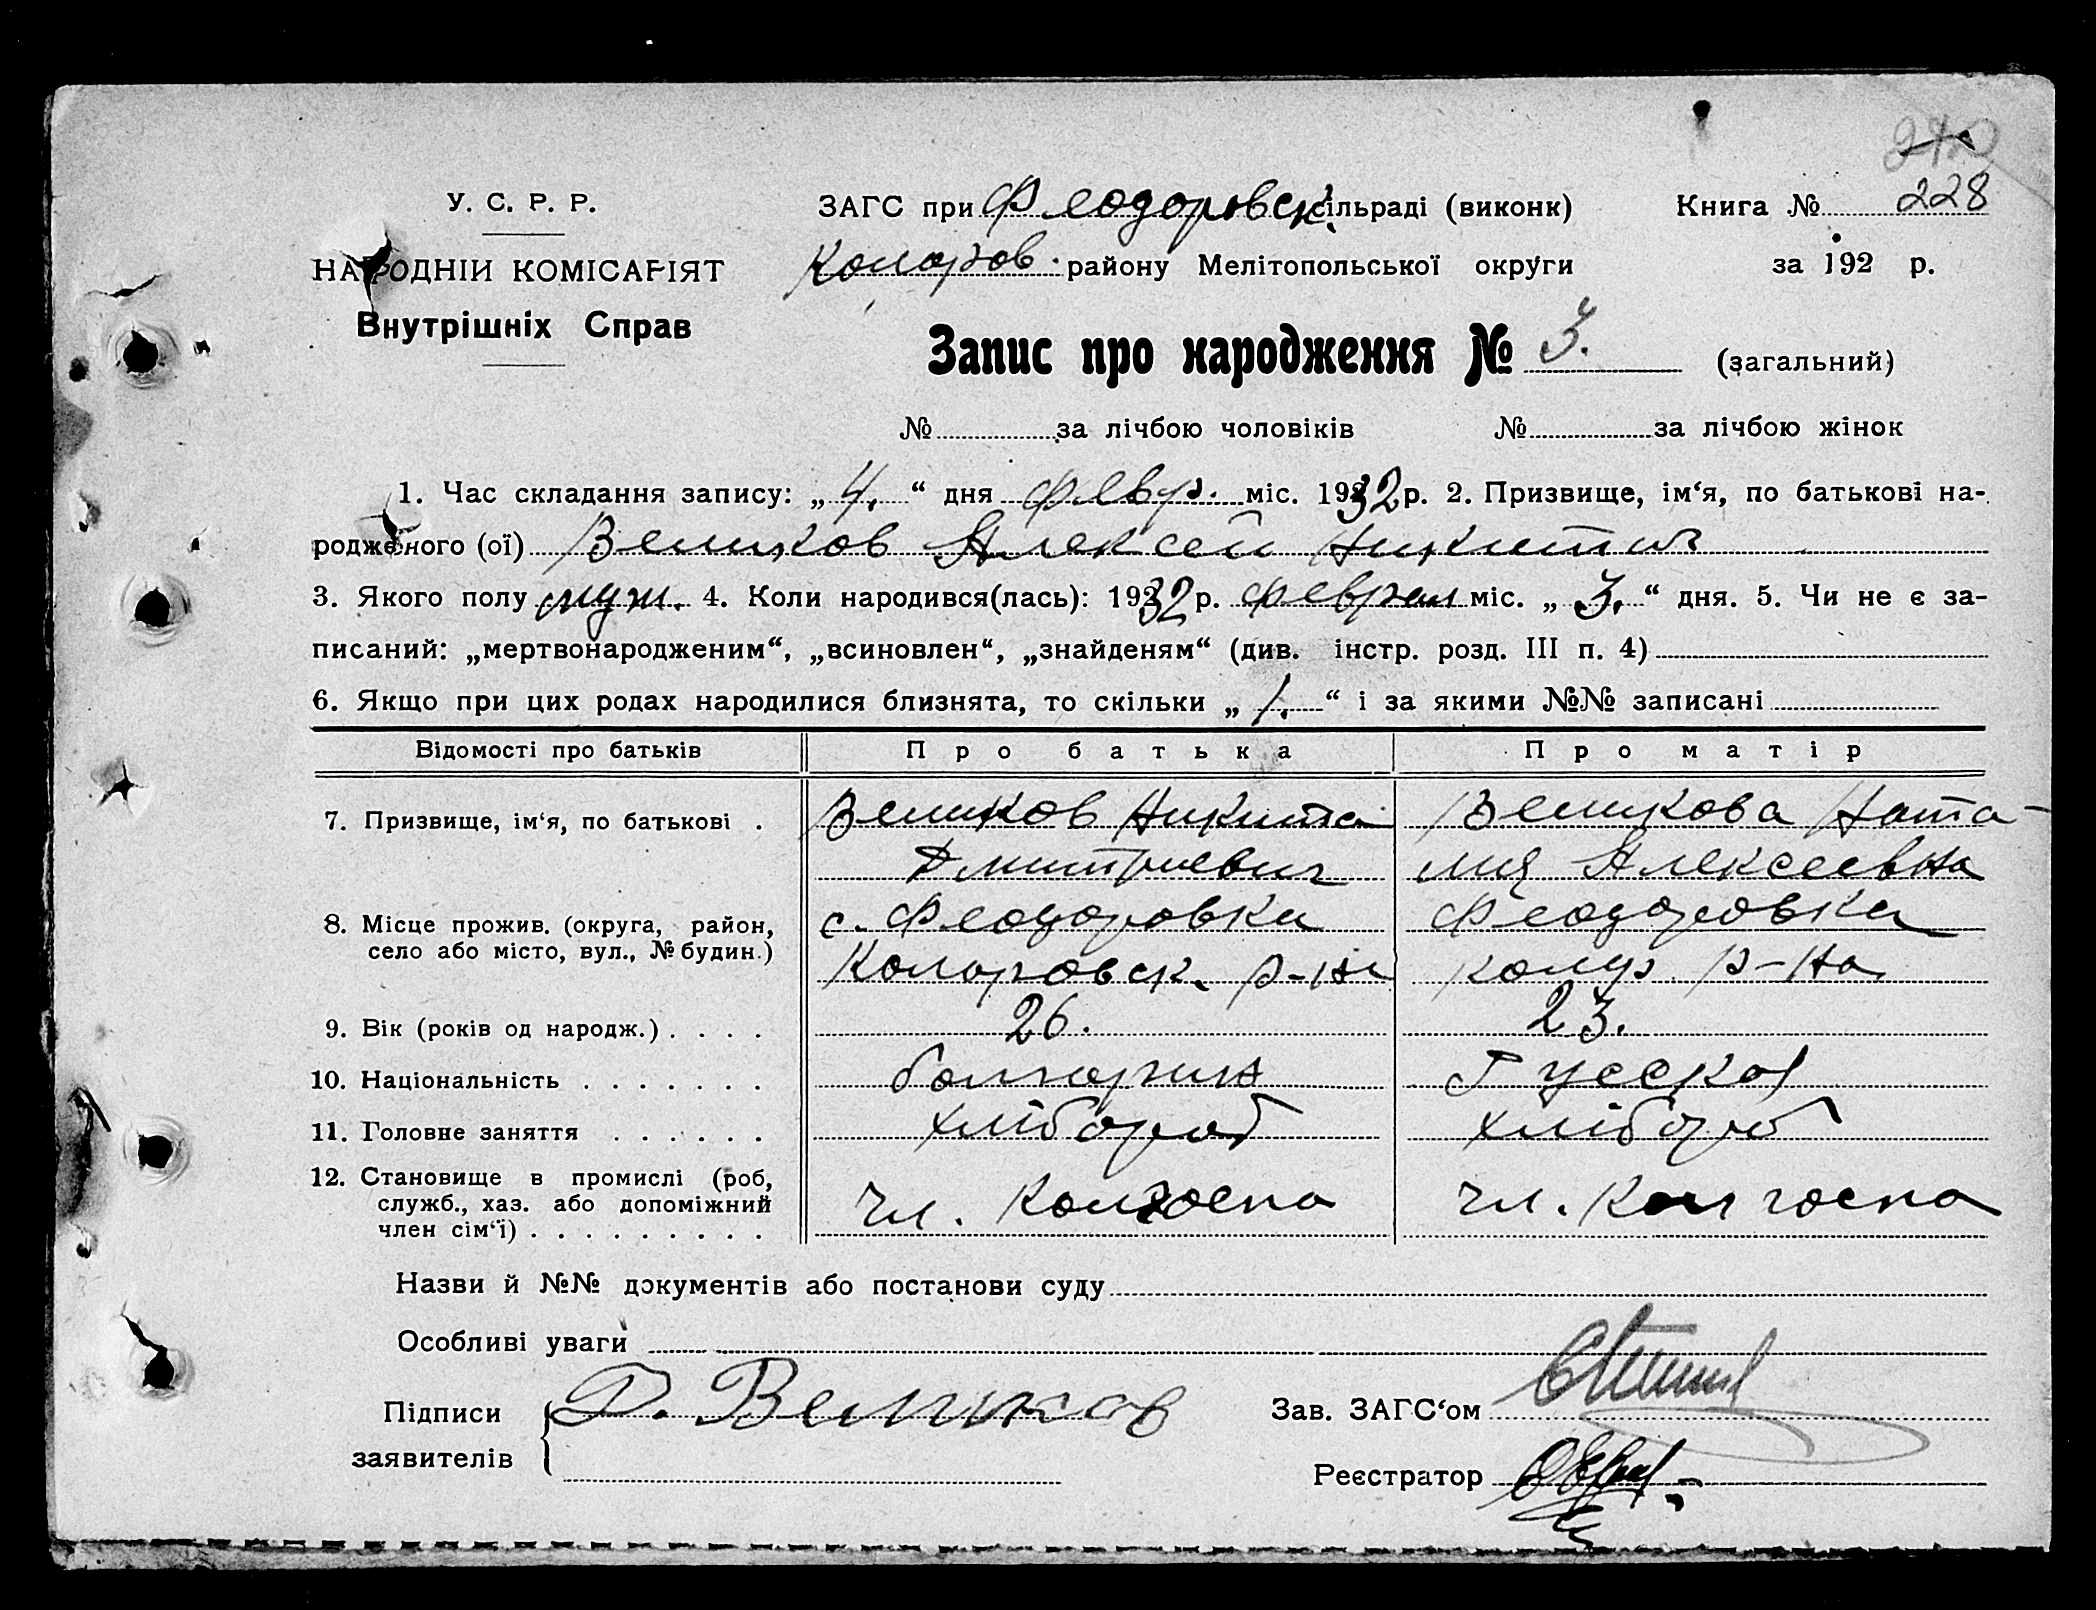 240
У. С. Р. Р.
ЗАГС при Феодоровск. сільраді (виконк)
Книга № 228
НАРОДНІЙ КОМІСАРІЯТ
Коларов. району Мелітопольської округи
за 192 р.
Внутрішніх Справ
Запис про народження № 3. (загальний)
№ за лічбою чоловіків № за лічбою жінок
1. Час складання запису: „ 4. “ дня февр. міс. 1932 р. 2. Призвище, ім‘я, по батькові на-
родженого (ої) Великов Алексей Никитич
3. Якого полу муж. 4. Коли народився(лась): 1932 р. феврал міс. „ 3. “ дня. 5. Чи не є за-
писаний: „мертвонародженим“, „всиновлен“, „знайденям“ (див. інстр. розд. III п. 4)
6. Якщо при цих родах народилися близнята, то скільки „ 1. “ і за якими №№ записані
Відомості про батьків Про батька Про матір
7. Призвище, ім‘я, по батькові . Великов Никита Великова Ната-
Дмитриевич лия Алексеевна
8. Місце прожив. (округа, район, с. Феодоровка Феодоровка
село або місто, вул., № будин.) Коларовск. р-на Колар р-на
9. Вік (років од народж.) . . . . 26. 23.
10. Національність . . . . . . . болгарин Русская
11. Головне заняття . . . . . . хлібороб хлібороб
12. Становище в промислі (роб, чл. Колгоспа чл. Колгоспа
служб., хаз. або допоміжний
член сім‘ї) . . . . . . . . .
Назви й №№ документів або постанови суду
Особливі уваги
Підписи Д. Великов Зав. ЗАГС‘ом
заявителів
Реєстратор